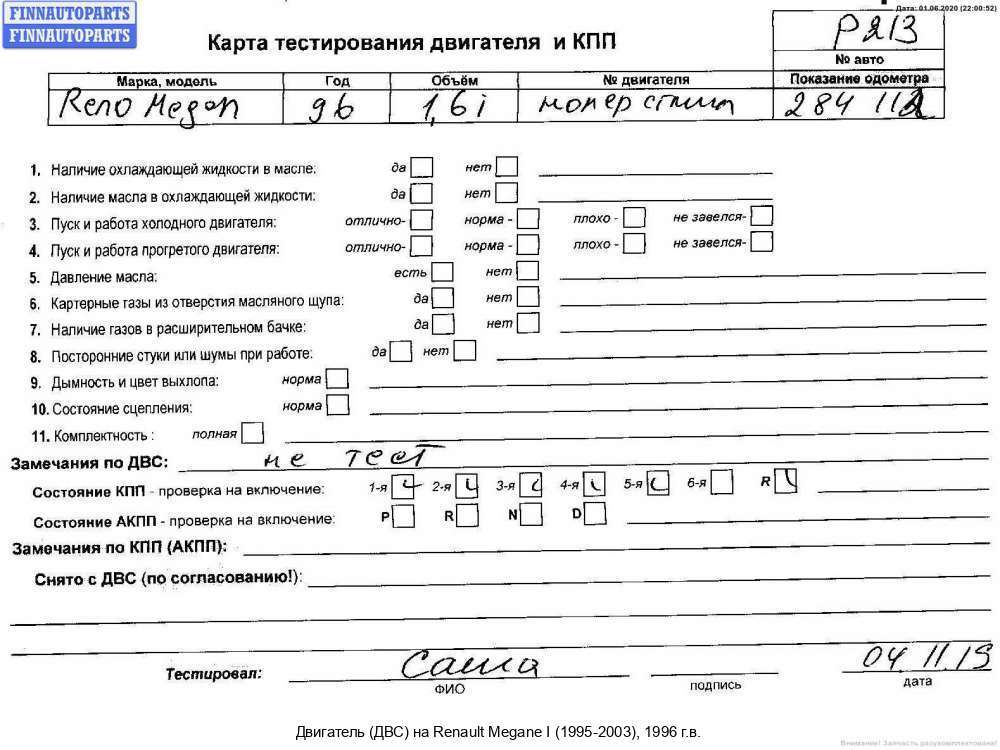 FINNAUTOPARTS
FINNAUTOPARTS
Дата: 01.06.2020 (22:00:52)
P213
Карта тестирования двигателя и КПП
№ авто
Марка, модель Год Объём № двигателя Показание одометра
Рено Меган 96 1,6i номер стёрт 284 112
1. Наличие охлаждающей жидкости в масле: да нет
2. Наличие масла в охлаждающей жидкости: да нет
3. Пуск и работа холодного двигателя: отлично- норма - плохо - не завелся-
4. Пуск и работа прогретого двигателя: отлично- норма - плохо - не завелся-
5. Давление масла: есть нет
6. Картерные газы из отверстия масляного щупа: да нет
7. Наличие газов в расширительном бачке: да нет
8. Посторонние стуки или шумы при работе: да нет
9. Дымность и цвет выхлопа: норма
10. Состояние сцепления: норма
11. Комплектность : полная
Замечания по ДВС: не тест
Состояние КПП - проверка на включение: 1-я 2-я 3-я 4-я 5-я 6-я R
Состояние АКПП - проверка на включение: P R N D
Замечания по КПП (АКПП):
Снято с ДВС (по согласованию!):
Тестировал: Саша 04 11 19
ФИО подпись дата
Двигатель (ДВС) на Renault Megane I (1995-2003), 1996 г.в.
Внимание! Запчасть разукомплектована!